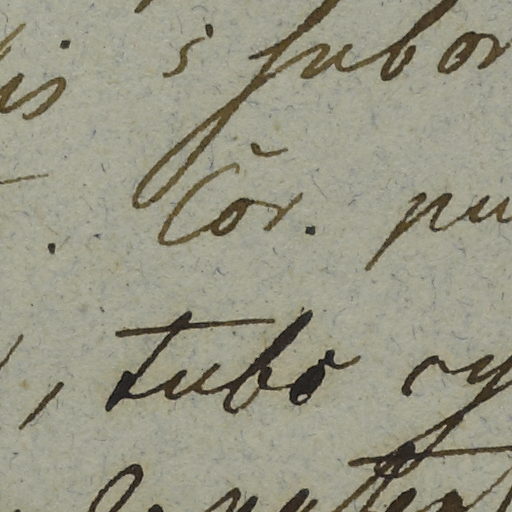 is s subor
. Cor. pu
, tubo cy